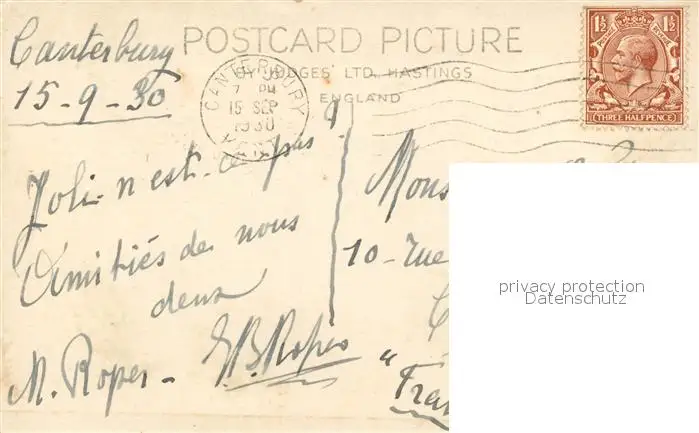 Canterbury
15-9-30
POSTCARD PICTURE
BY JUDGES' LTD, HASTINGS
ENGLAND
CANTERBURY
7 PM
15 SEP
1930
KENT
1½ 1½
POSTAGE REVENUE
THREE HALFPENCE
Joli n'est-ce pas?
Amitiés de nous
deux
M. Roper - G.B. Roper
Mons
10 - rue
"Fran
privacy protection
Datenschutz